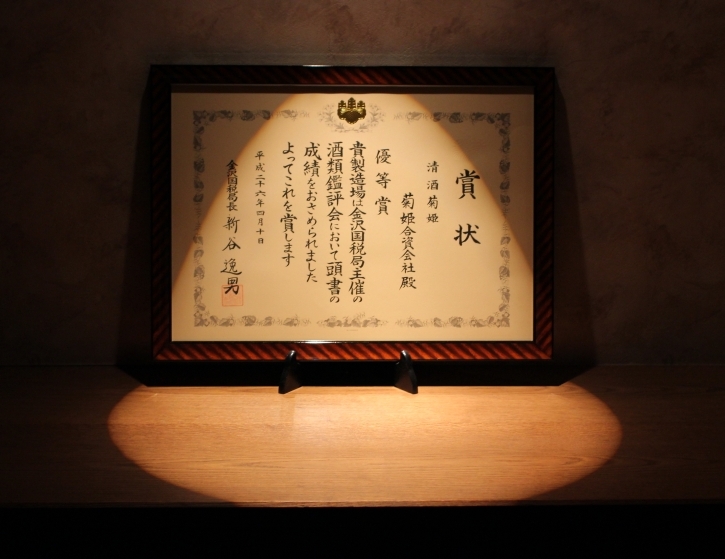 賞状
清酒菊姫
菊姫合資会社殿
優等賞
貴製造場は金沢国税局主催の
酒類鑑評会において頭書の
成績をおさめられました
よってこれを賞します
平成二十六年四月十日
金沢国税局長 新谷逸男